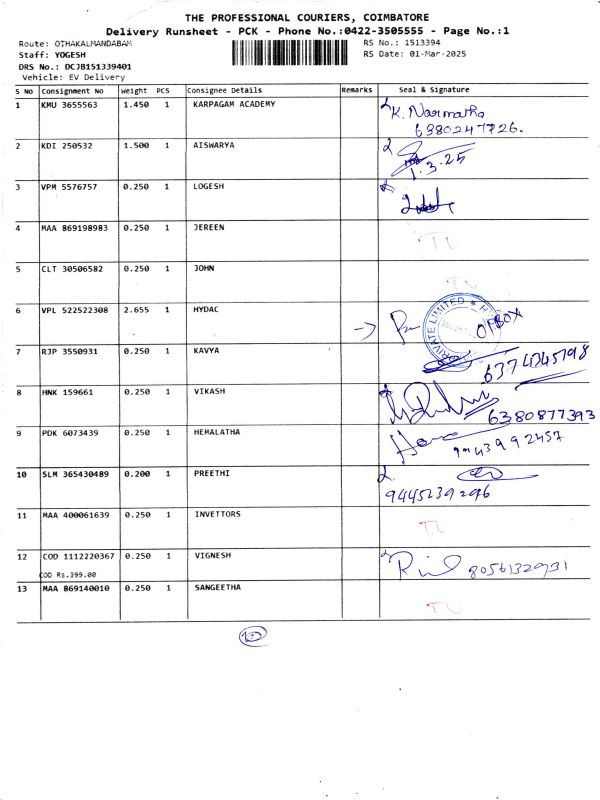 THE PROFESSIONAL COURIERS, COIMBATORE
Delivery Runsheet - PCK - Phone No.:0422-3505555 - Page No.:1
Route: OTHAKALMANDABAM
RS No.: 1513394
Staff: YOGESH
RS Date: 01-Mar-2025
DRS No.: DCJB151339401
Vehicle: EV Delivery
S No Consignment No Weight PCS Consignee Details Remarks Seal & Signature
1 KMU 3655563 1.450 1 KARPAGAM ACADEMY K. Narmatha
6380247726.
2 KDI 250532 1.500 1 AISWARYA 1.3.25
3 VPM 5576757 0.250 1 LOGESH
4 MAA 869198983 0.250 1 JEREEN TL
5 CLT 30506582 0.250 1 JOHN TL
6 VPL 522522308 2.655 1 HYDAC PRIVATE LIMITED
7 RJP 3550931 0.250 1 KAVYA 6374345798
8 HNK 159661 0.250 1 VIKASH 6380877393
9 PDK 6073439 0.250 1 HEMALATHA 9443992457
10 SLM 365430489 0.200 1 PREETHI
9445239296
11 MAA 400061639 0.250 1 INVETTORS TL
12 COD 1112220367 0.250 1 VIGNESH 8056132931
COD Rs.399.00
13 MAA 869140010 0.250 1 SANGEETHA TL